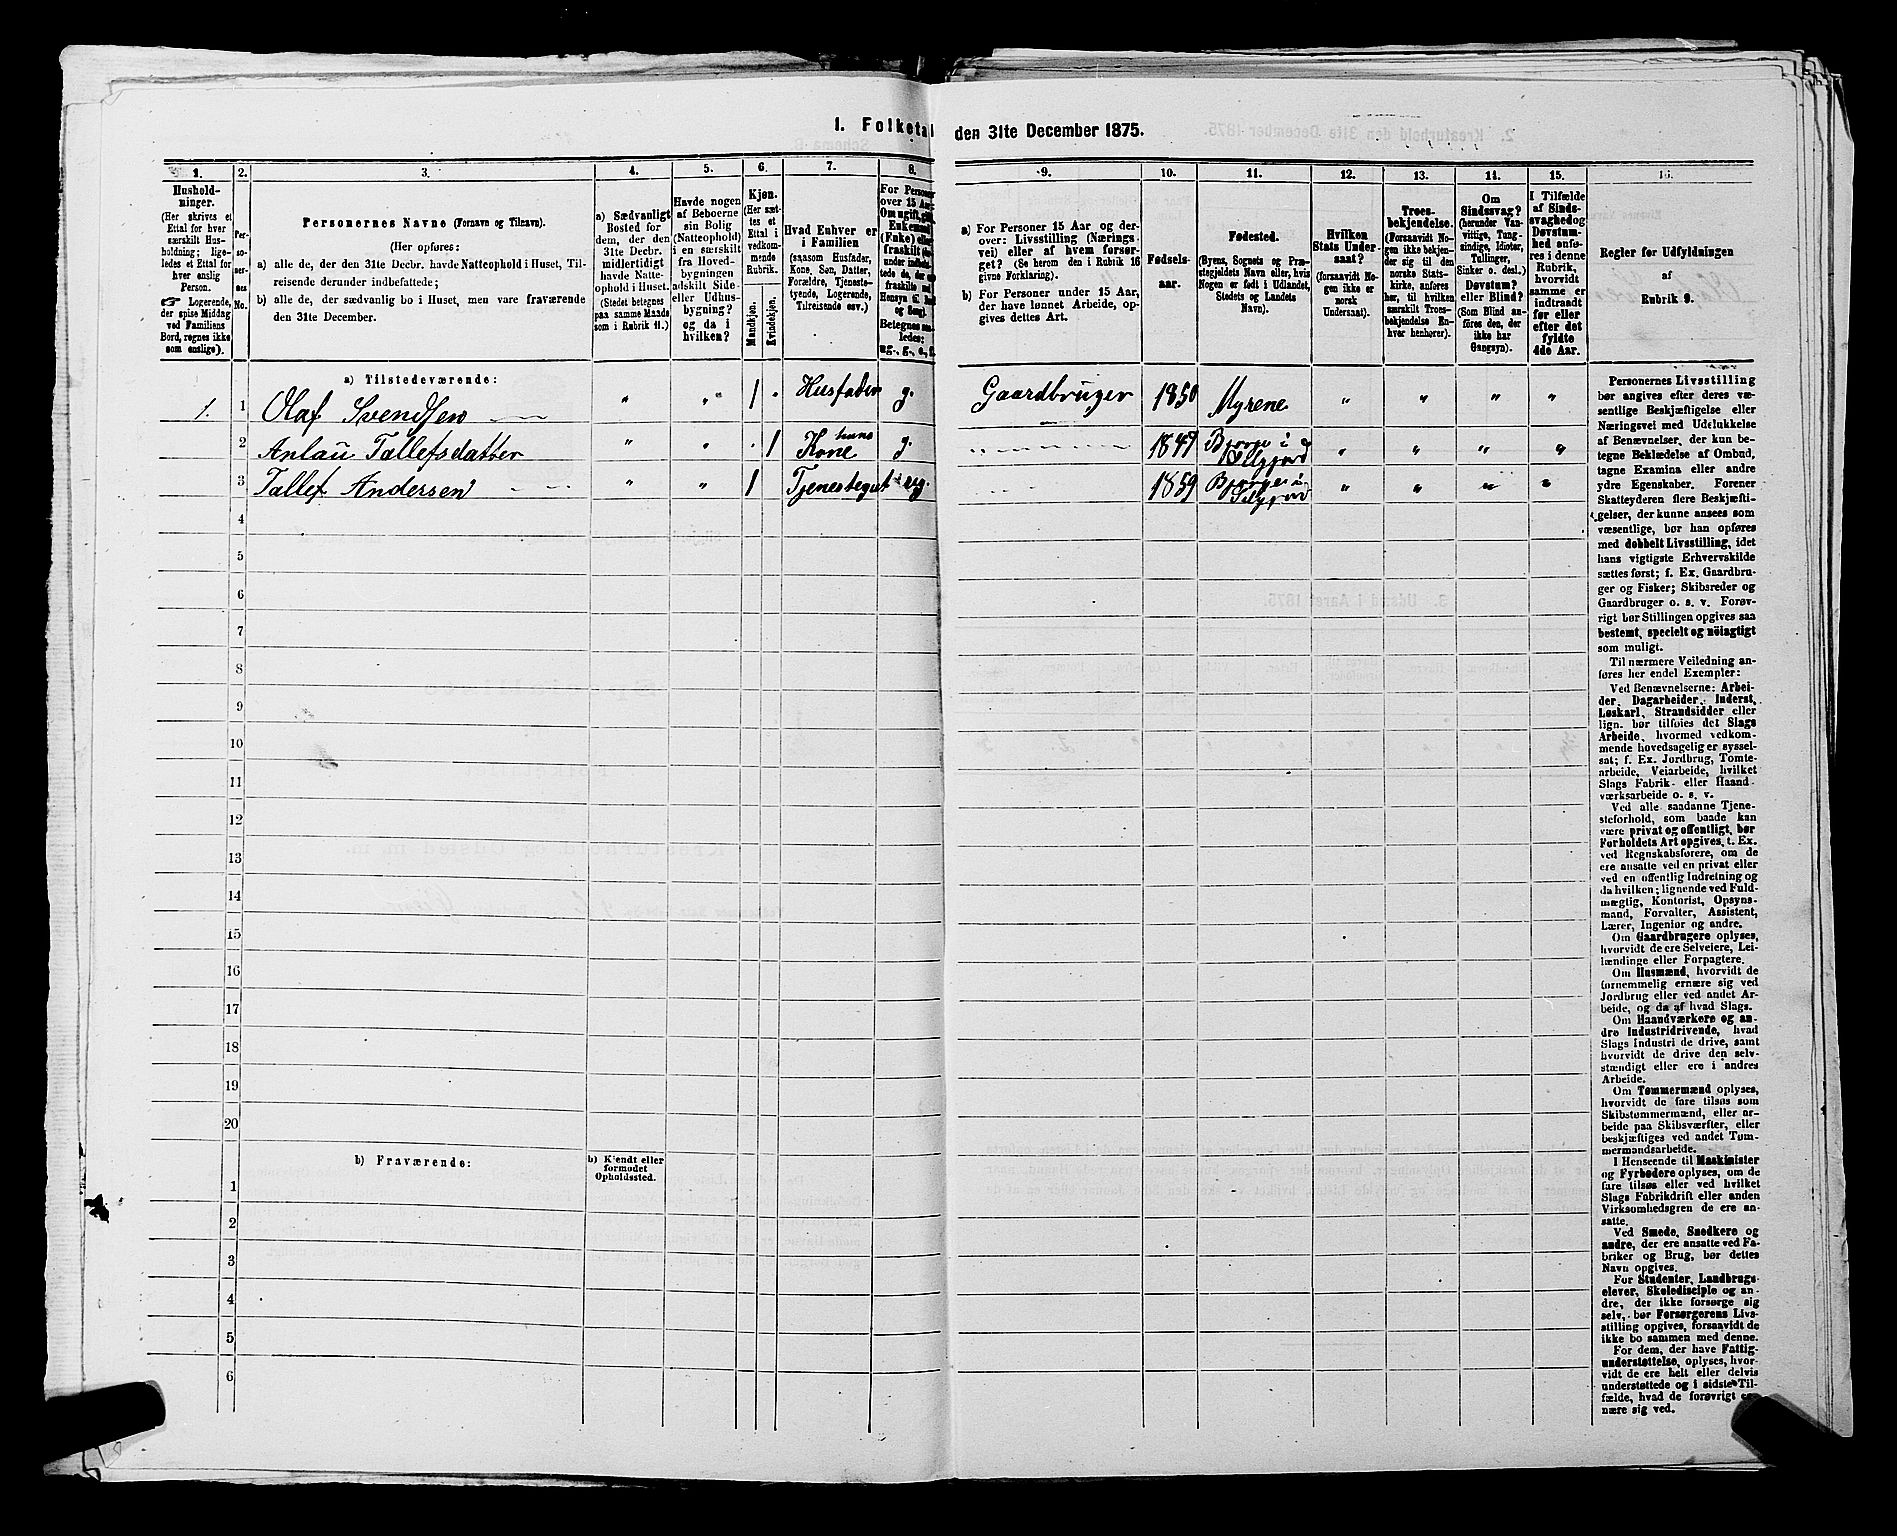 I. Folketal den 31te December 1875.
1.
2.
3.
4.
5.
6.
7.
8.
9.
10.
11.
12.
13.
14.
15.
16.
Hushold-
ninger.
(Her skrives et
Ettal for hver
særskilt Hus-
holdning; lige-
ledes et Ettal for
hver enslig
Person.
☞ Logerende,
der spise Middag
ved Familiens
Bord, regnes ikke
som enslige).
Per-
so-
ner-
nes
No.
Personernes Navne (Fornavn og Tilnavn).
(Her opføres:
a) alle de, der den 31te Decbr. havde Natteophold i Huset, Til-
reisende derunder indbefattede;
b) alle de, der sædvanlig bo i Huset, men vare fraværende
den 31te December.
a) Sædvanligt
Bosted for
dem, der den
31te Decbr.
midlertidigt
havde Natte-
ophold i Huset.
(Stedet betegnes
paa samme Maade
som i Rubrik 11.)
Havde nogen
af Beboerne
sin Bolig
(Natteophold)
i en særskilt
fra Hoved-
bygningen
adskilt Side-
eller Udhus-
bygning?
og da i
hvilken?
Kjøn.
(Her sæt-
tes et
Ettal i
vedkom-
mende
Rubrik.
Mandkjøn.
Kvindekjøn.
Hvad Enhver er
i Familien
(saasom Husfader,
Kone, Søn, Datter,
Forældre, Tjeneste-
tyende, Logerende,
Tilreisende osv.)
For Personer
over 15 Aar:
Om ugift, gift,
Enkemand
(Enke) eller
fraskilt
Betegnes saa-
ledes:
ug., g., e., f.
a) For Personer 15 Aar og der-
over: Livsstilling (Nærings-
vei) eller af hvem forsør-
get? (Se herom den i Rubrik 16
givne Forklaring).
b) For Personer under 15 Aar,
der have lønnet Arbeide, op-
gives dettes Art.
Fødsels-
aar.
Fødested.
(Byens, Sognets og Præ-
stegjeldets Navn eller, hvis
Nogen er født i Udlandet,
Stedets og Landets
Navn).
Hvilken
Stats Under-
saat?
(forsaavidt No-
gen ikke er
norsk
Undersaat).
Troes-
bekjendelse.
(Forsaavidt No-
gen ikke bekjen-
der sig til den
norske Stats-
kirke, anføres
her, til hvilken
særskilt Troes-
bekjendelse En-
hver henhører).
Om
Sindssvag?
(herunder Van-
vittige, Tung-
sindige, Idioter,
Tullinger,
Sinker o. desl.)
Døvstum?
eller Blind?
(Som Blind an-
føres den, der
ikke har
Gangsyn).
I Tilfælde
af Sinds-
svaghed og
Døvstum-
hed anfø-
res i denne
Rubrik,
hvorvidt
samme er
indtraadt
før eller
efter det
fyldte
4de Aar.
Regler for Udfyldningen
af
Rubrik 9.
a) Tilstedeværende:
1. 1 Olaf Svendsen " " 1 Husfader g. Gaardbruger 1850 Myrene " " " "
2 Anlau Tallefsdatter " " 1 hans Kone g. 1849 Bjorge i Silgjord " " " "
3 Tallef Andersen " " 1 Tjenestegut ug. 1859 Bjorge i Silgjord " " " "
4
5
6
7
8
9
10
11
12
13
14
15
16
17
18
19
20
b) Fraværende:
b) Kjendt eller
formodet
Opholdssted.
1
2
3
4
5
6
Personernes Livsstilling
bør angives efter deres væ-
sentlige Beskjæftigelse eller
Næringsvei med Udelukkelse
af Benævnelser, der kun be-
tegne Beklædelse af Ombud,
tagne Examina eller andre
ydre Egenskaber. Forener
Skatteyderen flere Beskjæfti-
gelser, der kunne ansees som
væsentlige, bør han opføres
med dobbelt Livsstilling, idet
hans vigtigste Erhvervskilde
sættes først; f. Ex. Gaardbru-
ger og Fisker; Skibsreder og
Gaardbruger o. s. v. Forøv-
rigt bør Stillingen opgives saa
bestemt, specielt og nöiagtigt
som muligt.
Til nærmere Veiledning an-
føres her endel Exempler:
Ved Benævnelserne: Arbei-
der, Dagarbeider, Inderst,
Løskarl, Strandsidder eller
lign. bør tilføies det Slags
Arbeide, hvormed vedkom-
mende hovedsagelig er syssel-
sat; f. Ex. Jordbrug, Tomte-
arbeide, Veiarbeide, hvilket
Slags Fabrik- eller Haand-
værksarbeide o. s. v.
Ved alle saadanne Tjene-
steforhold, som baade kan
være privat og offentligt, bør
Forholdets Art opgives, t. Ex.
ved Regnskabsførere, om de
ere ansatte ved en privat eller
ved en offentlig Indretning og
da hvilken; lignende ved Fuld-
mægtig, Kontorist, Opsyns-
mand, Forvalter, Assistent,
Lærer, Ingeniør og andre.
Om Gaardbrugere oplyses,
hvorvidt de ere Selveiere, Lei-
lændinge eller Forpagtere.
Om Husmænd, hvorvidt de
fornemmelig ernære sig ved
Jordbrug eller ved andet Ar-
beide, og da af hvad Slags.
Om Haandværkere og an-
dre Industridrivende, hvad
Slags Industri de drive, samt
hvorvidt de drive den selv-
stændigt eller ere i andres
Arbeide.
Om Tømmermænd oplyses,
hvorvidt de fare tilsøs som
Skibstømmermænd, eller ar-
beide paa Skibsværfter, eller
beskjæftiges ved andet Tøm-
mermandsarbeide.
I Henseende til Maskinister
og Fyrbødere oplyses, om de
fare tilsøs eller ved hvilket
Slags Fabrikdrift eller anden
Virksomhedsgren de ere an-
satte.
Ved Smede, Snedkere og
andre, der ere ansatte ved Fa-
briker og Brug, bør dettes
Navn opgives.
For Studenter, Landbrugs-
elever, Skoledisciple og an-
dre, der ikke forsørge sig
selv, bør Forsørgerens Livs-
stilling opgives, forsaavidt de
ikke bo sammen med denne.
For dem, der have Fattig-
understøttelse, oplyses, hvor-
vidt de ere helt eller delvis
understøttede og i sidste Til-
fælde, hvad de forøvrigt er-
nære sig ved.